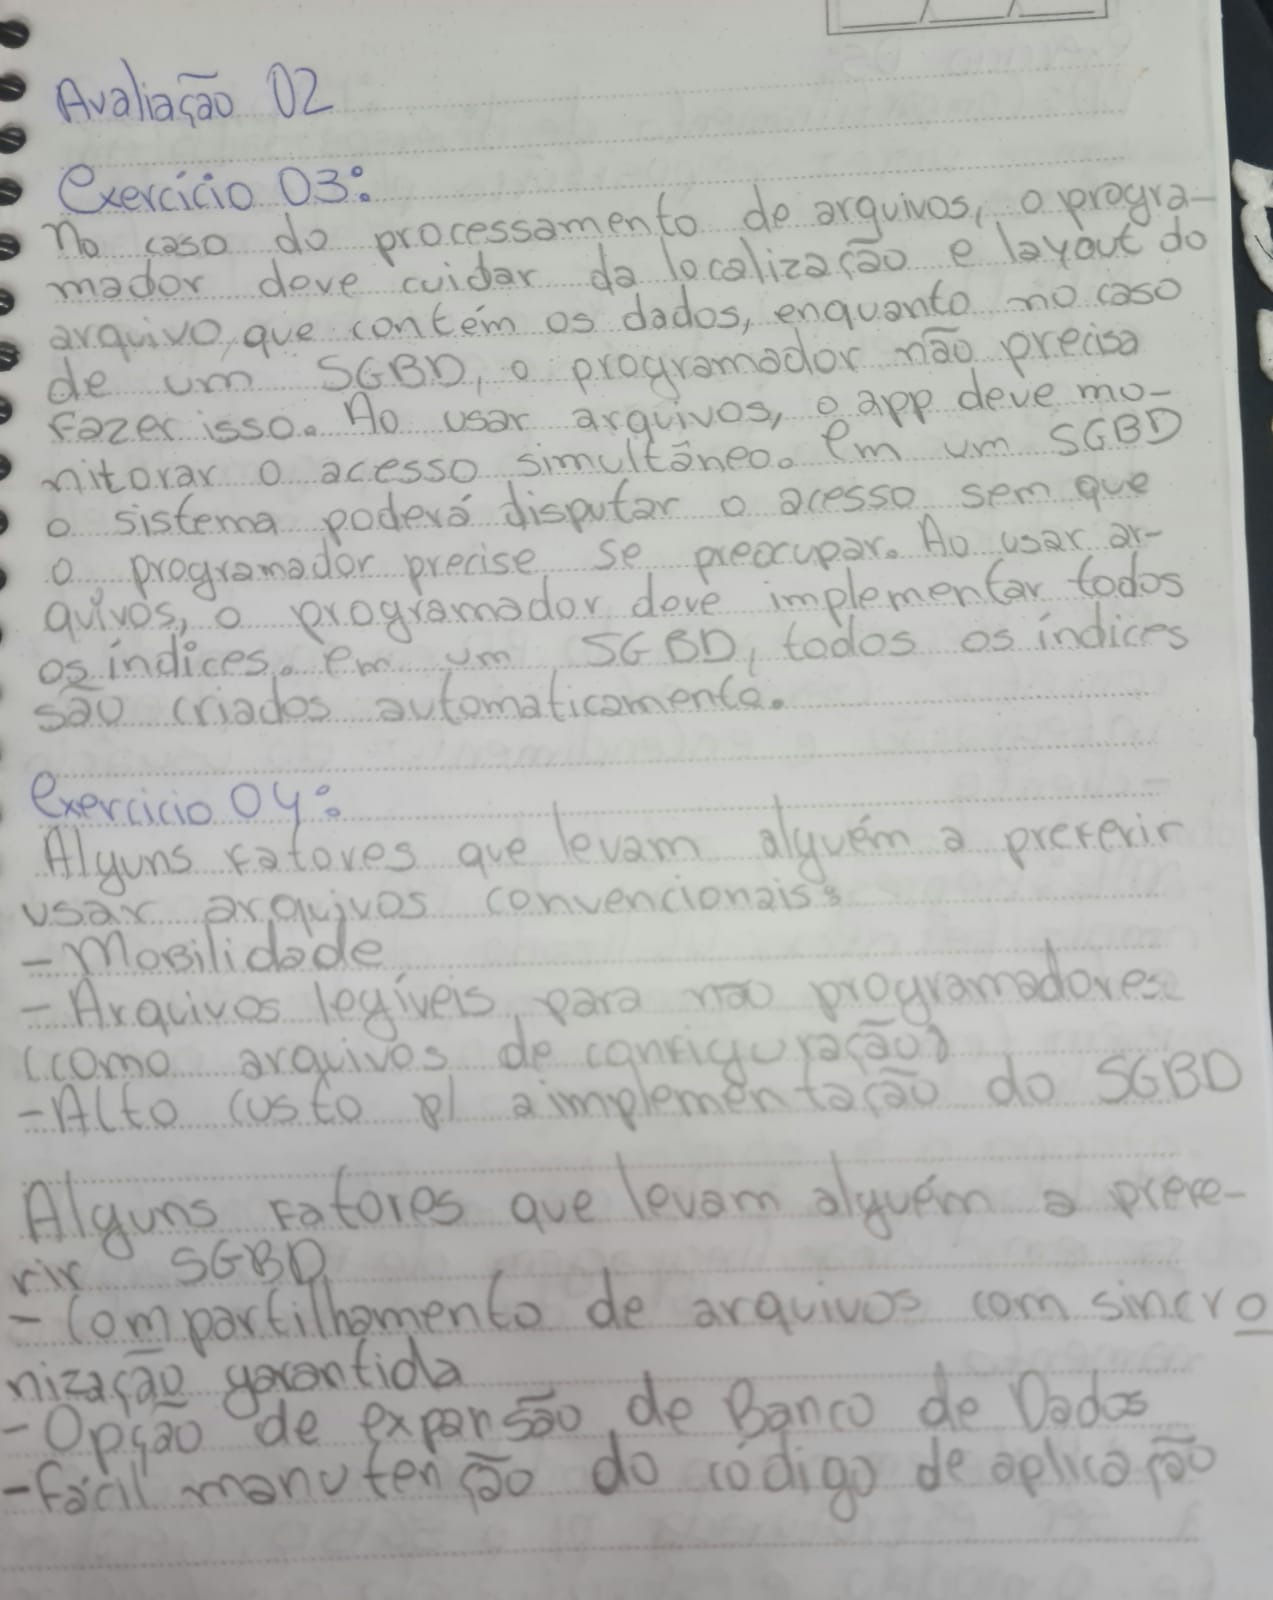 Avaliação 02
Exercício 03:
No caso do processamento de arquivos, o progra-
mador deve cuidar da localização e layout do
arquivo que contém os dados, enquanto no caso
de um SGBD, o programador não precisa
fazer isso. Ao usar arquivos, o app deve mo-
nitorar o acesso simultâneo. Em um SGBD
o sistema poderá disputar o acesso sem que
o programador precise se preocupar. Ao usar ar-
quivos, o programador deve implementar todos
os índices. em um SGBD, todos os índices
são criados automaticamente.
Exercicio 04:
Alguns fatores que levam alguém a preferir
usar arquivos convencionais:
- Mobilidade
- Arquivos legíveis para não programadores
(como arquivos de configuração)
- Alto custo p/ a implementação do SGBD
Alguns fatores que levam alguém a prefe-
rir SGBD
- Compartilhamento de arquivos com sincro
nização garantida
- Opção de expansão de Banco de Dados
- Fácil manutenção do código de aplicação